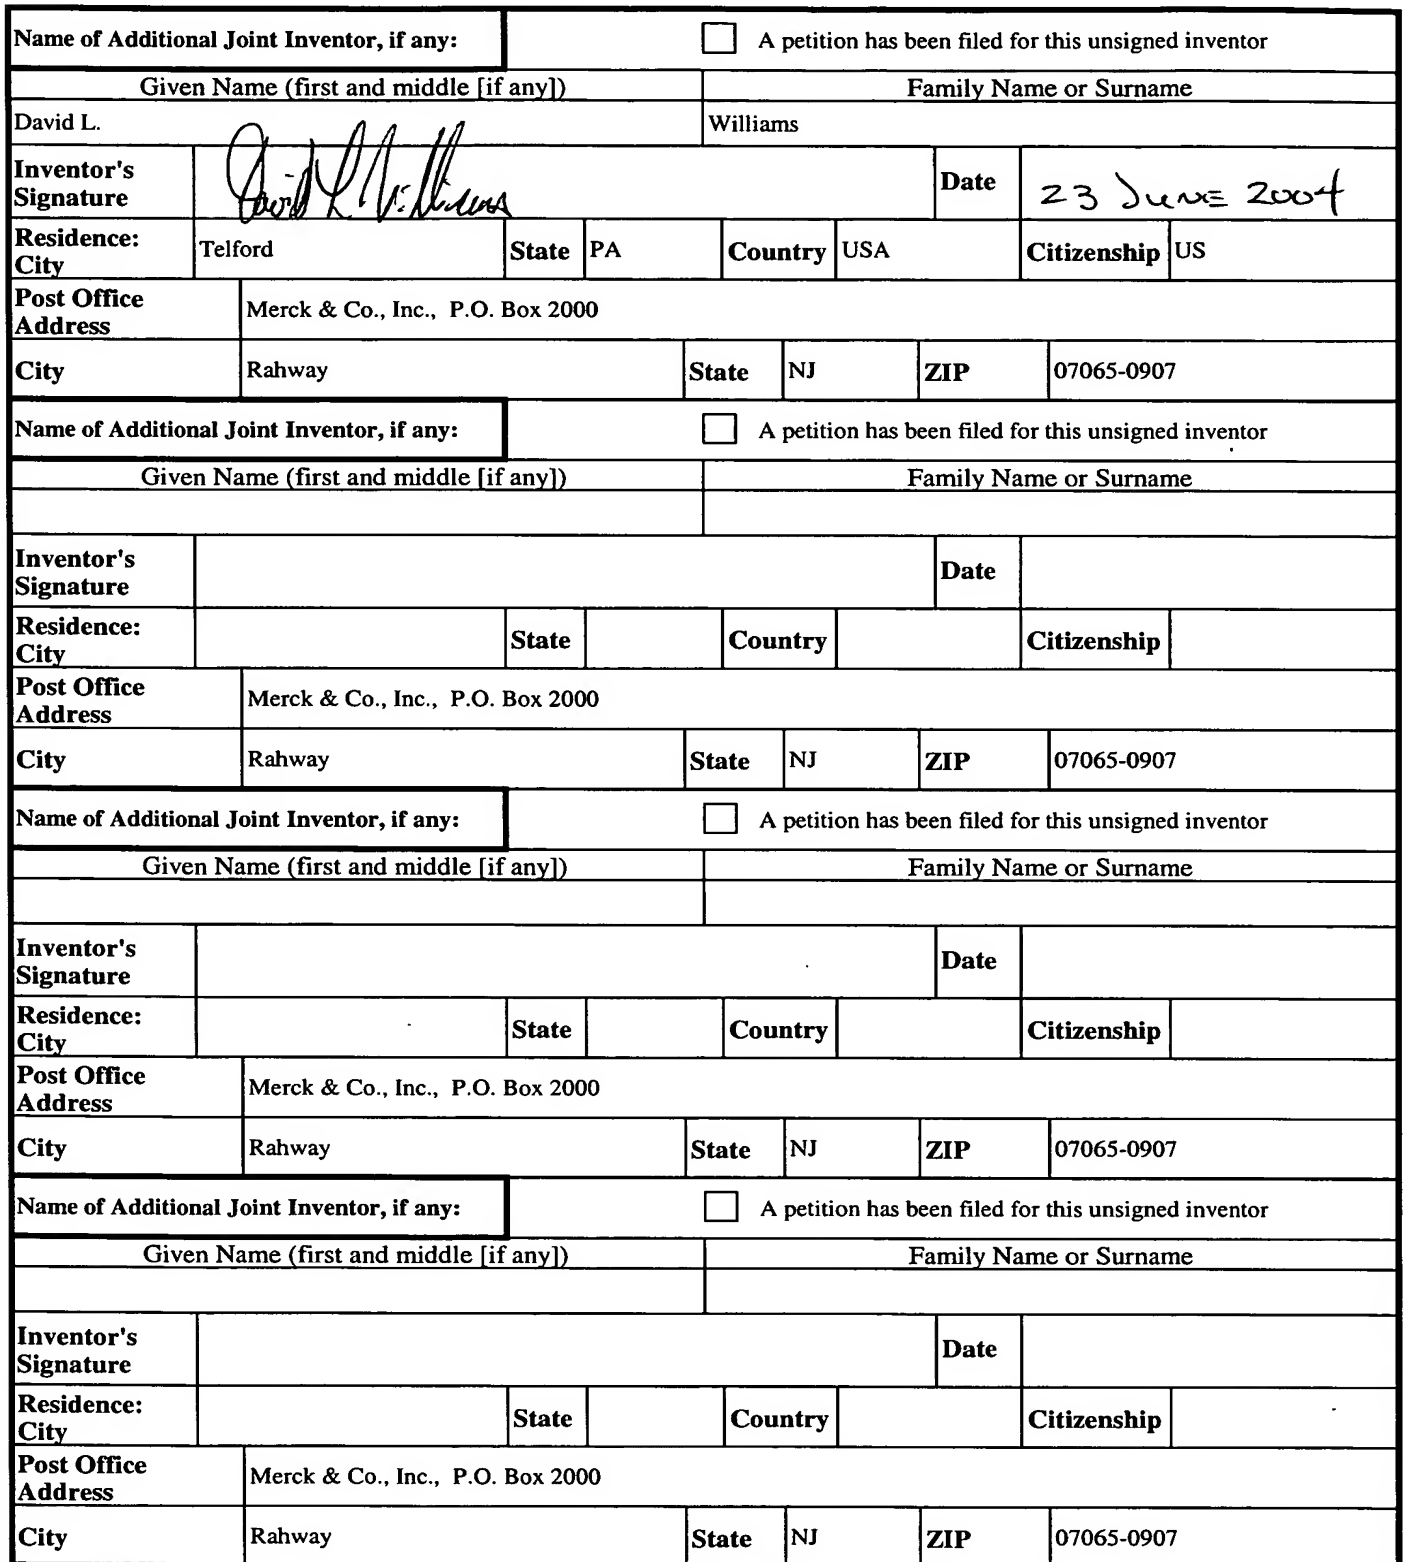 Name of Additional Joint Inventor, if any: A petition has been filed for this unsigned inventor
Given Name (first and middle [if any]) Family Name or Surname
David L. Williams
Inventor's Signature David L. Williams Date 23 JUNE 2004
Residence: City Telford State PA Country USA Citizenship US
Post Office Address Merck & Co., Inc., P.O. Box 2000
City Rahway State NJ ZIP 07065-0907
Name of Additional Joint Inventor, if any: A petition has been filed for this unsigned inventor
Given Name (first and middle [if any]) Family Name or Surname
Inventor's Signature Date
Residence: City State Country Citizenship
Post Office Address Merck & Co., Inc., P.O. Box 2000
City Rahway State NJ ZIP 07065-0907
Name of Additional Joint Inventor, if any: A petition has been filed for this unsigned inventor
Given Name (first and middle [if any]) Family Name or Surname
Inventor's Signature Date
Residence: City State Country Citizenship
Post Office Address Merck & Co., Inc., P.O. Box 2000
City Rahway State NJ ZIP 07065-0907
Name of Additional Joint Inventor, if any: A petition has been filed for this unsigned inventor
Given Name (first and middle [if any]) Family Name or Surname
Inventor's Signature Date
Residence: City State Country Citizenship
Post Office Address Merck & Co., Inc., P.O. Box 2000
City Rahway State NJ ZIP 07065-0907